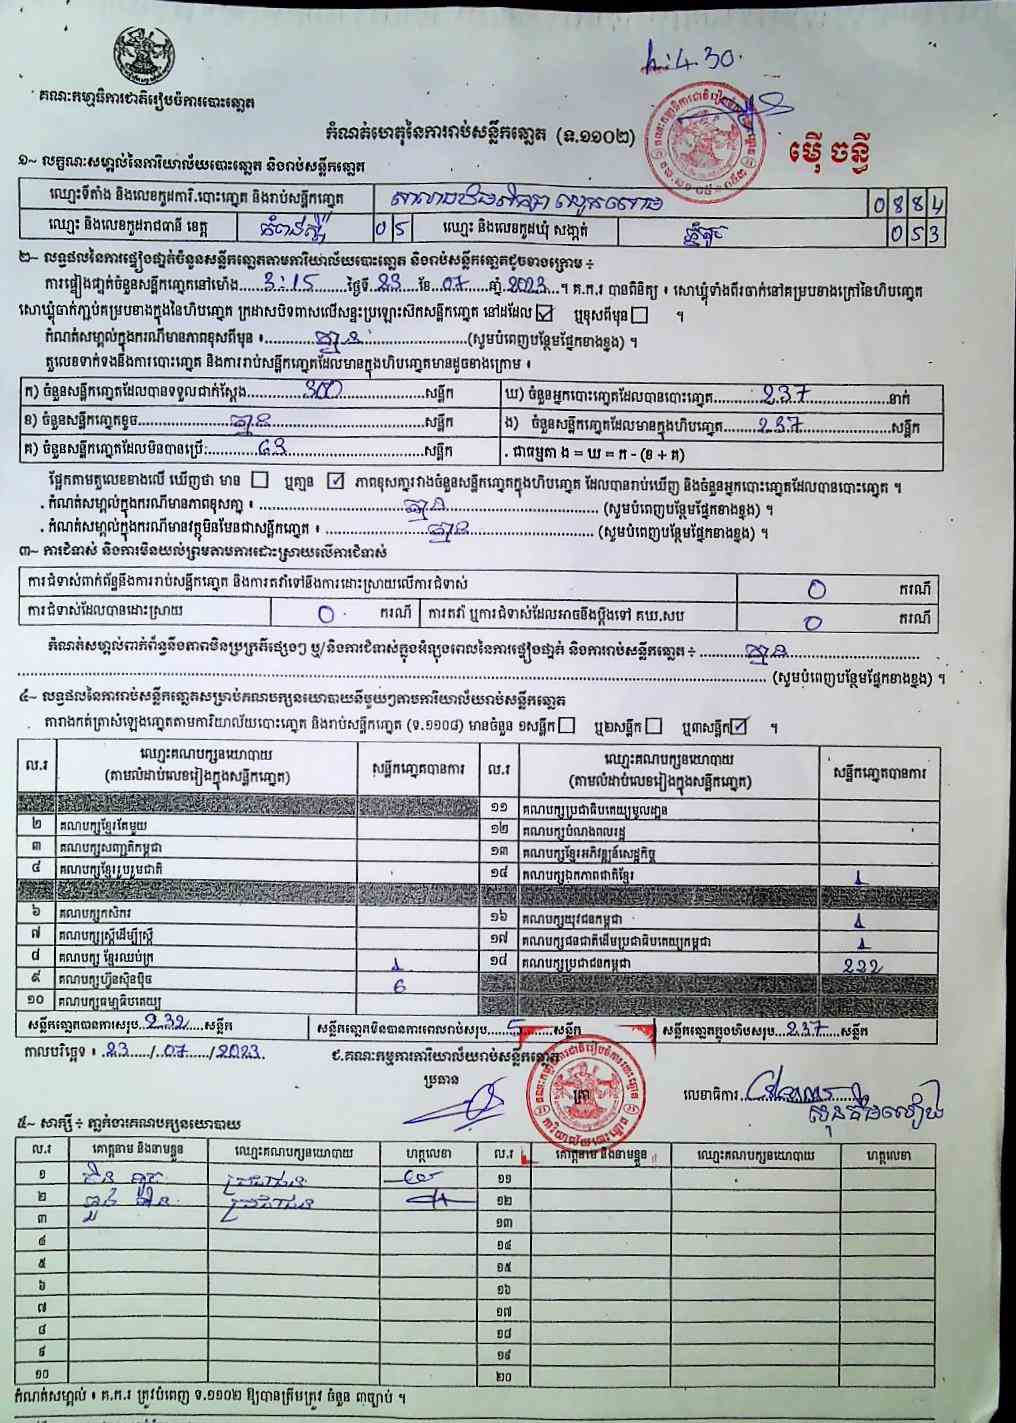 h:4.30
គណៈកម្មាធិការជាតិរៀបចំការបោះឆ្នោត
កំណត់ហេតុនៃការរាប់សន្លឹកឆ្នោត (ទ.១១០២)
ម៉ើ ចន្ធី
១~ លក្ខណៈសម្គាល់នៃការិយាល័យបោះឆ្នោត និងរាប់សន្លឹកឆ្នោត
ឈ្មោះទីតាំង និងលេខកូដការិ.បោះឆ្នោត និងរាប់សន្លឹកឆ្នោត 0884
ឈ្មោះ និងលេខកូដរាជធានី ខេត្ត កំពង់ស្ពឺ 05 ឈ្មោះ និងលេខកូដឃុំ សង្កាត់ 053
២~ លទ្ធផលនៃការផ្ទៀងផ្ទាត់ចំនួនសន្លឹកឆ្នោតតាមការិយាល័យបោះឆ្នោត និងរាប់សន្លឹកឆ្នោតដូចខាងក្រោម ÷
ការផ្ទៀងផ្ទាត់ចំនួនសន្លឹកឆ្នោតនៅម៉ោង 3:15 ថ្ងៃទី 23 ខែ 07 ឆ្នាំ 2023 ។ គ.ក.រ បានពិនិត្យ ៖ សោឃ្លុំទាំងពីរចាក់នៅគម្របខាងក្រៅនៃហិបឆ្នោត
សោឃ្លុំចាក់ភ្ជាប់គម្របខាងក្នុងនៃហិបឆ្នោត ក្រដាសបិទពាសលើសន្ទះប្រឡោះស៊កសន្លឹកឆ្នោត នៅដដែល ☑ ឬខុសពីមុន ☐ ។
កំណត់សម្គាល់ក្នុងករណីមានភាពខុសពីមុន ៖ គ្មាន (សូមបំពេញបន្ថែមផ្នែកខាងខ្នង) ។
តួលេខទាក់ទងនឹងការបោះឆ្នោត និងការរាប់សន្លឹកឆ្នោតដែលមានក្នុងហិបឆ្នោតមានដូចខាងក្រោម ៖
ក) ចំនួនសន្លឹកឆ្នោតដែលបានទទួលជាក់ស្ដែង 300 សន្លឹក ឃ) ចំនួនអ្នកបោះឆ្នោតដែលបានបោះឆ្នោត 237 នាក់
ខ) ចំនួនសន្លឹកឆ្នោតខូច គ្មាន សន្លឹក ង) ចំនួនសន្លឹកឆ្នោតដែលមានក្នុងហិបឆ្នោត 237 សន្លឹក
គ) ចំនួនសន្លឹកឆ្នោតដែលមិនបានប្រើ: 63 សន្លឹក . ជាធម្មតា ង = ឃ = ក - (ខ + គ)
ផ្អែកតាមតួលេខខាងលើ ឃើញថា មាន ☐ ឬគ្មាន ☑ ភាពខុសគ្នារវាងចំនួនសន្លឹកឆ្នោតក្នុងហិបឆ្នោត ដែលបានរាប់ឃើញ និងចំនួនអ្នកបោះឆ្នោតដែលបានបោះឆ្នោត ។
. កំណត់សម្គាល់ក្នុងករណីមានភាពខុសគ្នា ៖ គ្មាន (សូមបំពេញបន្ថែមផ្នែកខាងខ្នង) ។
. កំណត់សម្គាល់ក្នុងករណីមានវត្ថុមិនមែនជាសន្លឹកឆ្នោត ៖ គ្មាន (សូមបំពេញបន្ថែមផ្នែកខាងខ្នង) ។
៣~ ការជំទាស់ និងការមិនយល់ព្រមតាមការដោះស្រាយលើការជំទាស់
ការជំទាស់ពាក់ព័ន្ធនឹងការរាប់សន្លឹកឆ្នោត និងការតវ៉ាទៅនឹងការដោះស្រាយលើការជំទាស់ 0 ករណី
ការជំទាស់ដែលបានដោះស្រាយ 0 ករណី ការតវ៉ា ឬការជំទាស់ដែលអាចនឹងប្ដឹងទៅ គឃ.សប 0 ករណី
កំណត់សម្គាល់ពាក់ព័ន្ធនឹងភាពមិនប្រក្រតីផ្សេងៗ ឬ/និងការជំទាស់ក្នុងអំឡុងពេលនៃការផ្ទៀងផ្ទាត់ និងការរាប់សន្លឹកឆ្នោត ÷ គ្មាន
(សូមបំពេញបន្ថែមផ្នែកខាងខ្នង) ។
៤~ លទ្ធផលនៃការរាប់សន្លឹកឆ្នោតសម្រាប់គណបក្សនយោបាយនីមួយៗតាមការិយាល័យរាប់សន្លឹកឆ្នោត
តារាងកត់ត្រាសំឡេងឆ្នោតតាមការិយាល័យបោះឆ្នោត និងរាប់សន្លឹកឆ្នោត (ទ.១១០៨) មានចំនួន ១សន្លឹក ☐ ឬ២សន្លឹក ☐ ឬ៣សន្លឹក ☑ ។
ល.រ ឈ្មោះគណបក្សនយោបាយ (តាមលំដាប់លេខរៀងក្នុងសន្លឹកឆ្នោត) សន្លឹកឆ្នោតបានការ ល.រ ឈ្មោះគណបក្សនយោបាយ (តាមលំដាប់លេខរៀងក្នុងសន្លឹកឆ្នោត) សន្លឹកឆ្នោតបានការ
១១ គណបក្សប្រជាធិបតេយ្យមូលដ្ឋាន
២ គណបក្សខ្មែរតែមួយ ១២ គណបក្សបំណងពលរដ្ឋ
៣ គណបក្សសញ្ជាតិកម្ពុជា ១៣ គណបក្សខ្មែរអភិវឌ្ឍន៍សេដ្ឋកិច្ច
៤ គណបក្សខ្មែររួបរួមជាតិ ១៤ គណបក្សឯកភាពជាតិខ្មែរ 1
៦ គណបក្សកសិករ ១៦ គណបក្សយុវជនកម្ពុជា 1
៧ គណបក្សស្ត្រីដើម្បីស្ត្រី ១៧ គណបក្សជនជាតិដើមប្រជាធិបតេយ្យកម្ពុជា 1
៨ គណបក្ស ខ្មែរឈប់ក្រ 1 ១៨ គណបក្សប្រជាជនកម្ពុជា 222
៩ គណបក្សហ៊្វុនស៊ិនប៉ិច 6
១០ គណបក្សធម្មាធិបតេយ្យ
សន្លឹកឆ្នោតបានការសរុប 232 សន្លឹក សន្លឹកឆ្នោតមិនបានការពេលរាប់សរុប 5 សន្លឹក សន្លឹកឆ្នោតក្នុងហិបសរុប 237 សន្លឹក
កាលបរិច្ឆេទ ៖ 23 / 07 / 2023 ជ.គណៈកម្មការការិយាល័យរាប់សន្លឹកឆ្នោត
ប្រធាន ត្រា លេខាធិការ
៥~ សាក្សី ÷ ភ្នាក់ងារគណបក្សនយោបាយ
ល.រ គោត្តនាម និងនាមខ្លួន ឈ្មោះគណបក្សនយោបាយ ហត្ថលេខា ល.រ គោត្តនាម និងនាមខ្លួន ឈ្មោះគណបក្សនយោបាយ ហត្ថលេខា
១ ប្រជាជន ១១
២ ប្រជាជន ១២
៣ ១៣
៤ ១៤
៥ ១៥
៦ ១៦
៧ ១៧
៨ ១៨
៩ ១៩
១០ ២០
កំណត់សម្គាល់ ៖ គ.ក.រ ត្រូវបំពេញ ទ.១១០២ ឱ្យបានត្រឹមត្រូវ ចំនួន ៣ច្បាប់ ។